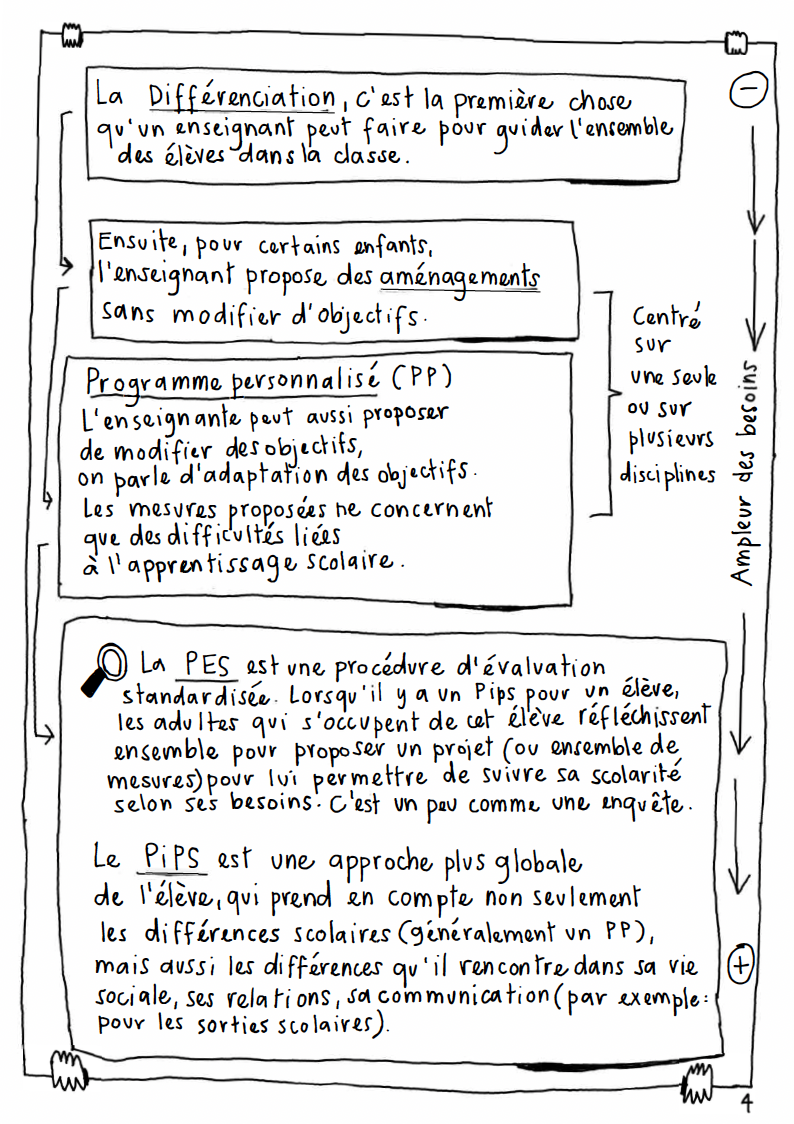 La Différenciation, c'est la première chose
qu'un enseignant peut faire pour guider l'ensemble
des élèves dans la classe.
Ensuite, pour certains enfants,
l'enseignant propose des aménagements
sans modifier d'objectifs.
Programme personnalisé (PP)
L'enseignante peut aussi proposer
de modifier des objectifs,
on parle d'adaptation des objectifs.
Les mesures proposées ne concernent
que des difficultés liées
à l'apprentissage scolaire.
Centré
sur
une seule
ou sur
plusieurs
disciplines
La PES est une procédure d'évaluation
standardisée. Lorsqu'il y a un Pips pour un élève,
les adultes qui s'occupent de cet élève réfléchissent
ensemble pour proposer un projet (ou ensemble de
mesures) pour lui permettre de suivre sa scolarité
selon ses besoins. C'est un peu comme une enquête.
Le PiPS est une approche plus globale
de l'élève, qui prend en compte non seulement
les différences scolaires (généralement un PP),
mais aussi les différences qu'il rencontre dans sa vie
sociale, ses relations, sa communication (par exemple:
pour les sorties scolaires).
-
Ampleur des besoins
+
4